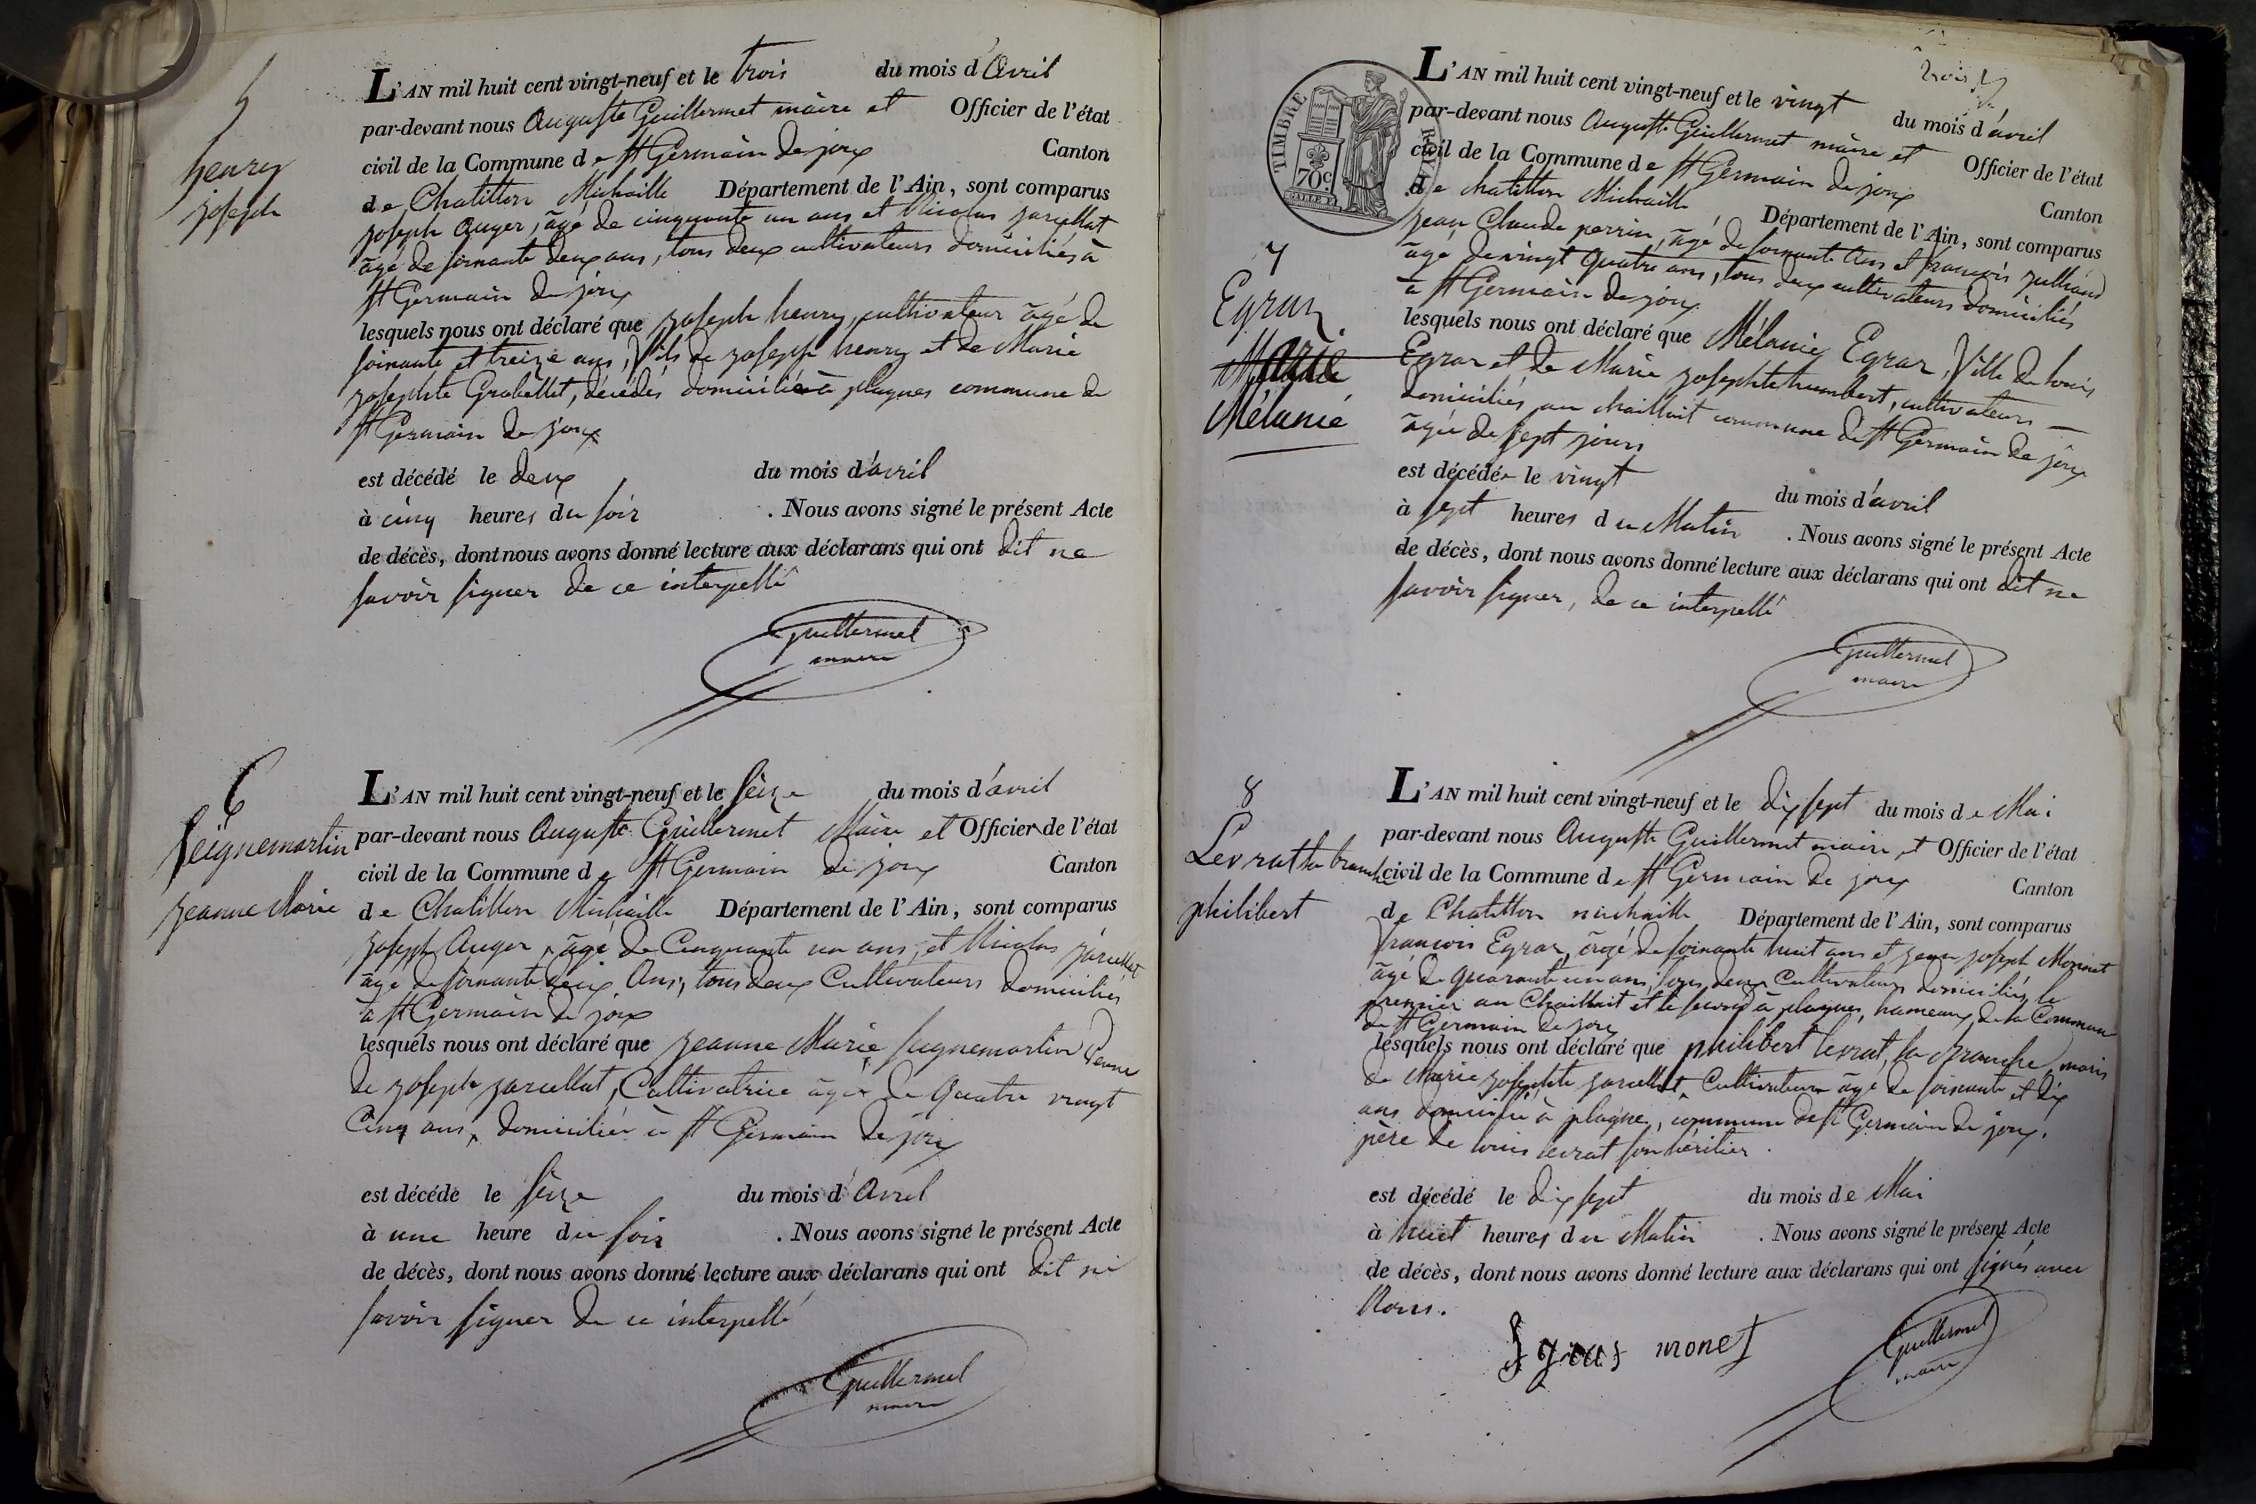 5
henry
joseph
L'AN mil huit cent vingt-neuf et le trois du mois d'Avril
par-devant nous Auguste Guillermet maire et Officier de l'état
civil de la Commune de St Germain de joux Canton
de Chatillon Michaille Département de l'Ain, sont comparus
joseph Auger, âgé de cinquante un ans et Nicolas jarcellat
âgé de soixante deux ans, tous deux cultivateurs domiciliés à
St Germain de joux
lesquels nous ont déclaré que joseph henry, cultivateur âgé de
soixante et treize ans, fils de joseph henry et de Marie
josephte Grobellet, décédés domicilié à plagnes commune de
St Germain de joux
est décédé le deux du mois d'avril
à cinq heures du soir . Nous avons signé le présent Acte
de décès, dont nous avons donné lecture aux déclarans qui ont dit ne
savoir signer de ce interpellé
Guillermet
maire
6
Seignemartin
jeanne Marie
L'AN mil huit cent vingt-neuf et le seize du mois d'avril
par-devant nous Auguste Guillermet Maire et Officier de l'état
civil de la Commune de St Germain de joux Canton
de Chatillon Michaille Département de l'Ain, sont comparus
joseph Auger, âgé de Cinquante un ans, et Nicolas jarcellat
âgé de soixante deux Ans, tous deux Cultivateurs domiciliés
à St Germain de joux
lesquels nous ont déclaré que jeanne Marie Seignemartin Veuve
de joseph jarcellat, Cultivatrice âgée de Quatre vingt
Cinq ans, domiciliée à St Germain de joux
est décédé le seize du mois d'Avril
à une heure du soir . Nous avons signé le présent Acte
de décès, dont nous avons donné lecture aux déclarans qui ont dit ne
savoir signer de ce interpellé
Guillermet
maire
TIMBRE ROYAL
70c.
7
Egraz
Marie
Mélanie
L'AN mil huit cent vingt-neuf et le vingt du mois d'avril
par-devant nous Auguste Guillermet maire et Officier de l'état
civil de la Commune de St Germain de joux Canton
de chatillon Michaille Département de l'Ain, sont comparus
jean Claude perrin, âgé de soixante Ans et françois
âgé de vingt quatre ans, tous deux cultivateurs domiciliés
à St Germain de joux
lesquels nous ont déclaré que Mélanie Egraz, fille de louis
Egraz et de Marie josephte humbert, cultivateurs
domiciliés au chaillait commune de St Germain de joux
âgée de sept jours
est décédée le vingt du mois d'avril
à sept heures du Matin . Nous avons signé le présent Acte
de décès, dont nous avons donné lecture aux déclarans qui ont dit ne
savoir signer, de ce interpellé
Guillermet
maire
8
Levrat la branche
philibert
L'AN mil huit cent vingt-neuf et le dix sept du mois de Mai
par-devant nous Auguste Guillermet maire et Officier de l'état
civil de la Commune de St Germain de joux Canton
de Chatillon michaille Département de l'Ain, sont comparus
françois Egraz, âgé de soixante huit ans et jean joseph Monnet
âgé de quarante un ans, tous deux Cultivateurs domiciliés le
premier au Chaillait et le second à plagnes, hameaux de la Commune
de St Germain de joux
lesquels nous ont déclaré que philibert levrat, la branche, maris
de Marie josephte jarcellat, Cultivateur âgé de soixante et dix
ans domicilié à plagnes, commune de St Germain de joux.
père de louis levrat son héritier.
est décédé le dix sept du mois de Mai
à huit heures du Matin . Nous avons signé le présent Acte
de décès, dont nous avons donné lecture aux déclarans qui ont signés avec
Nous.
Egras monet
Guillermet
maire